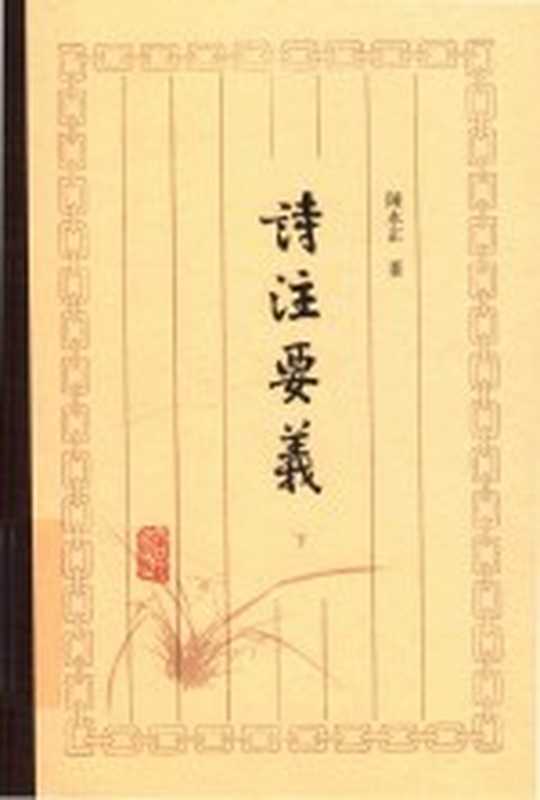 陳永正 著
詩注要義
下